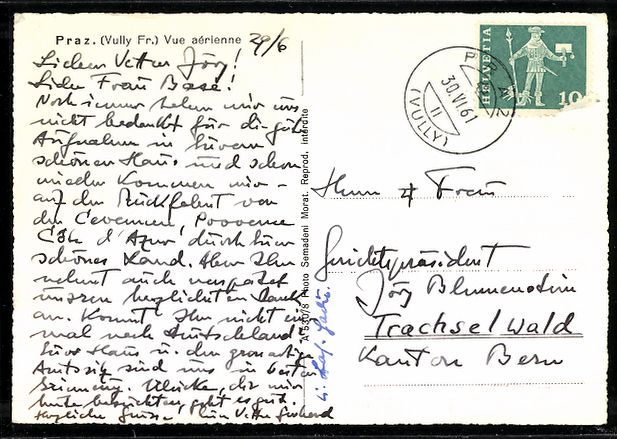 Praz. (Vully Fr.) Vue aérienne
29/6
Lieber Vetter Jörg!
Liebe Frau Base!
Noch immer haben wir uns
nicht bedankt für die gute
Aufnahme in Eurem
schönen Haus und schon
wieder kommen wir -
auf der Rückfahrt von
den Cevennen, Provence
Côte d'Azur durch Euer
schönes Land.
nehmt auch verspätet
unseren herzlichsten Dank
an. Kommt Ihr nicht ein-
mal nach Deutschland?
Euer Haus u. der grossartige
sind uns in bester
Erinnerung. die wir
heute besuchten, geht es gut.
Herzliche Grüsse Euer Vetter Gerhard
A 5300/8 Photo Semadeni Morat. Reprod. interdite
HELVETIA
10
PRAZ
30.VI.61
11
(VULLY)
Herrn & Frau
Gerichtspräsident
Jörg Blumenstein
Trachselwald
Kanton Bern